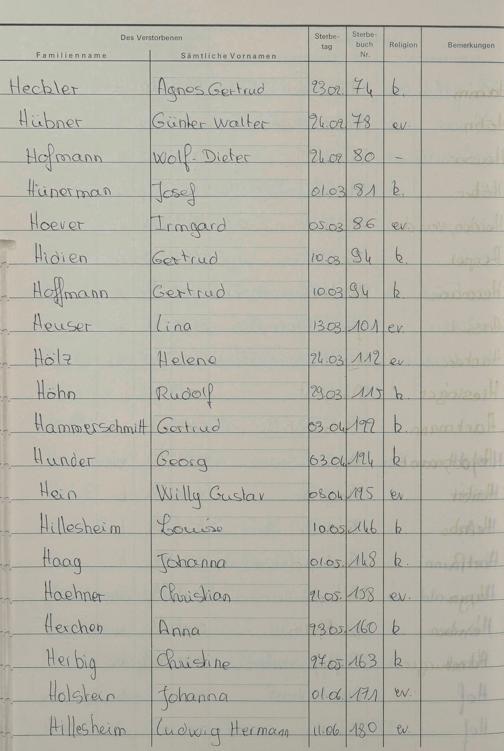 Des Verstorbenen Sterbe- Sterbe-
tag buch Religion Bemerkungen
Familienname Sämtliche Vornamen Nr.
Heckler Agnes Gertrud 23.02. 74 k.
Hübner Günter Walter 24.02 78 ev
Hofmann Wolf-Dieter 24.02 80 -
Hünerman Josef 01.03 81 k.
Hoever Irmgard 05.03 86 ev.
Hidien Gertrud 10.03 94 k.
Hoffmann Gertrud 10.03 94 k.
Heuser Lina 13.03 101 ev.
Holz Helene 24.03 112 ev
Höhn Rudolf 29.03 115 k.
Hammerschmitt Gertrud 03.04 k.
Hunder Georg 03.04 k
Hein Willy Gustav 08.04 ev
Hillesheim Louise 10.05 146 k
Haag Johanna 01.05. 148 k.
Haehner Christian 21.05. 158 ev.
Herchen Anna 23.05. 160 k
Herbig Christine 27.05 163 k
Holstein Johanna 01.06. 171 ev.
Hillesheim Ludwig Hermann 11.06 180 ev